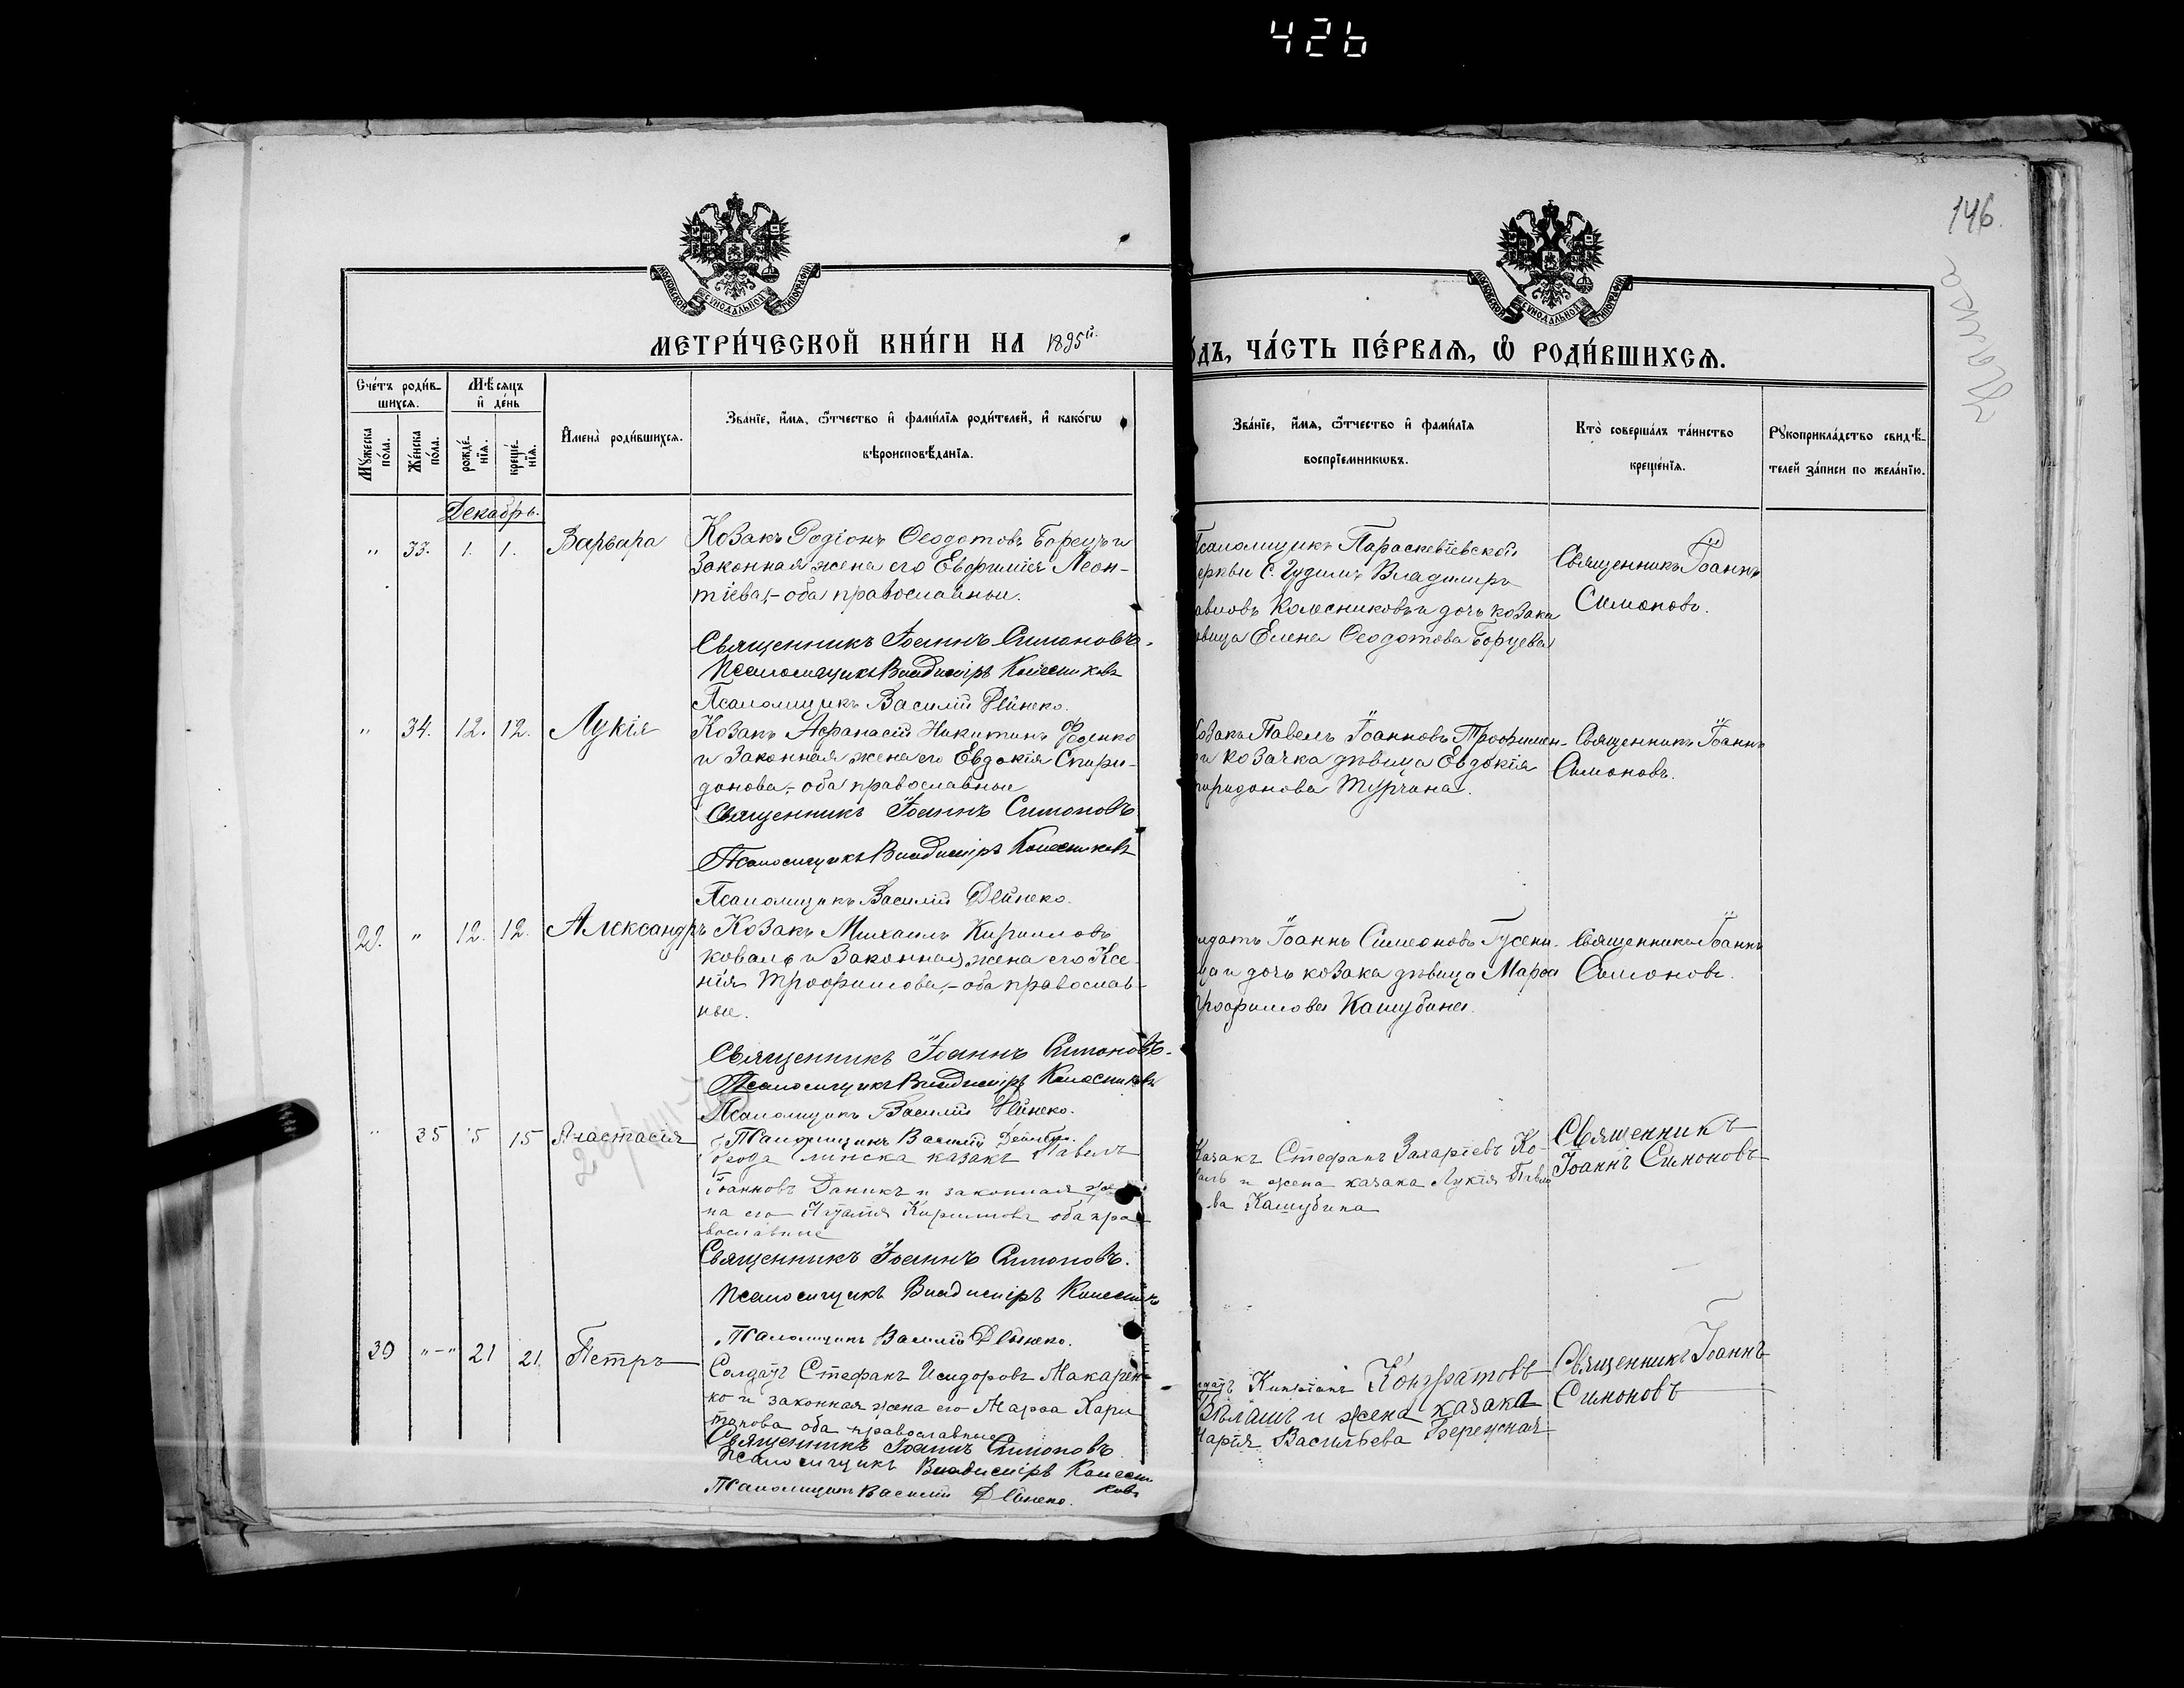 426
146.
МОСКОВСКОЙ СѴНОДАЛЬНОЙ ТИПОГРАФІИ
МОСКОВСКОЙ СѴНОДАЛЬНОЙ ТИПОГРАФІИ
МЕТРИ́ЧЕСКОЙ КНИ́ГИ НА 1895й.
ДЪ, ЧА́СТЬ ПЕ́РВАЯ, Ѡ҆ РОДИ́ВШИХСЯ.
Сче́тъ роди́в-
шихся.
Мѣ́сяцъ
и҆ де́нь
Мꙋ́жеска по́ла.
Же́нска по́ла.
рожде́-нїя.
креще́-нїя.
И҆мена̀ роди́вшихся.
Зва́нїе, и҆́мя, ѻ҆́тчество и҆ фами́лїя роди́телей, и҆ како́гѡ
вѣроисповѣ́данїя.
Зва́нїе, и҆́мя, ѻ҆́тчество и҆ фами́лїя
воспрїе́мникѡвъ.
Кто̀ соверша́лъ та́инство
креще́нїя.
Рꙋкоприкла́дство свидѣ́-
телей за́писи по жела́нїю.
Декабрь.
" 33. 1. 1. Варвара
Козакъ Родіонъ Ѳеодотовъ Борецъ и
законная жена его Евфимія Леон-
тіева,- оба православные.
Священникъ Іоаннъ Симоновъ.
Псаломщикъ Владиміръ Колесниковъ
Псаломщикъ Василій Дейнеко.
Псаломщикъ Параскевіевской
еркви с. Владиміръ
авловъ Колесниковъ и дочь козака
овица Елена Ѳеодотова Борцева
Священникъ Іоаннъ
Симоновъ.
" 34. 12. 12. Лукія
Козакъ Афанасій Никитинъ Фоденко
и законная жена его Евдокія Спири-
донова,- оба православные
Священникъ Іоаннъ Симоновъ
Псаломщикъ Владиміръ Колесниковъ
Псаломщикъ Василій Дейнеко.
Козакъ Павелъ Іоанновъ Трофимен-
и козачка дѣвица Евдокія
пиридонова Турчина.
Священникъ Іоаннъ
Симоновъ.
29. " 12. 12. Александръ
Козакъ Михаилъ Кирилловъ
Коваль и законная жена его Ксе-
нія Трофимова,- оба православ-
ные.
Священникъ Іоаннъ Симоновъ.
Псаломщикъ Владиміръ Колесниковъ
Псаломщикъ Василій Дейнеко.
лдатъ Іоаннъ Симеоновъ Гусени-
ца и дочь козака дѣвица Марѳа
рофимова Кашубина.
Священникъ Іоаннъ
Симоновъ.
" 35 15 15 Анастасія
Псаломщикъ Василій Дейнеко.
города казакъ Павелъ
Іоанновъ Даникъ и законная же-
на его Кириллова оба пра-
вославные
Священникъ Іоаннъ Симоновъ.
Псаломщикъ Владиміръ Колесник
Псаломщикъ Василій Дейнеко.
Казакъ Стефанъ Захаріевъ Ко-
валь и жена казака Лукія Павло
ва Кашубина
Священникъ
Іоаннъ Симоновъ
30 "-" 21 21 Петръ
Солдатъ Стефанъ Исидоровъ Макарен-
ко и законная жена его Марѳа Хари
тонова оба православные
Священникъ Іоаннъ Симоновъ
Псаломщикъ Владиміръ Колесни
ковъ
Псаломщикъ Василій Дейнеко.
лдатъ Кипріанъ Конгратовъ
Бѣлашъ и жена казака
Марія Васильева Березская
Священникъ Іоаннъ
Симоновъ